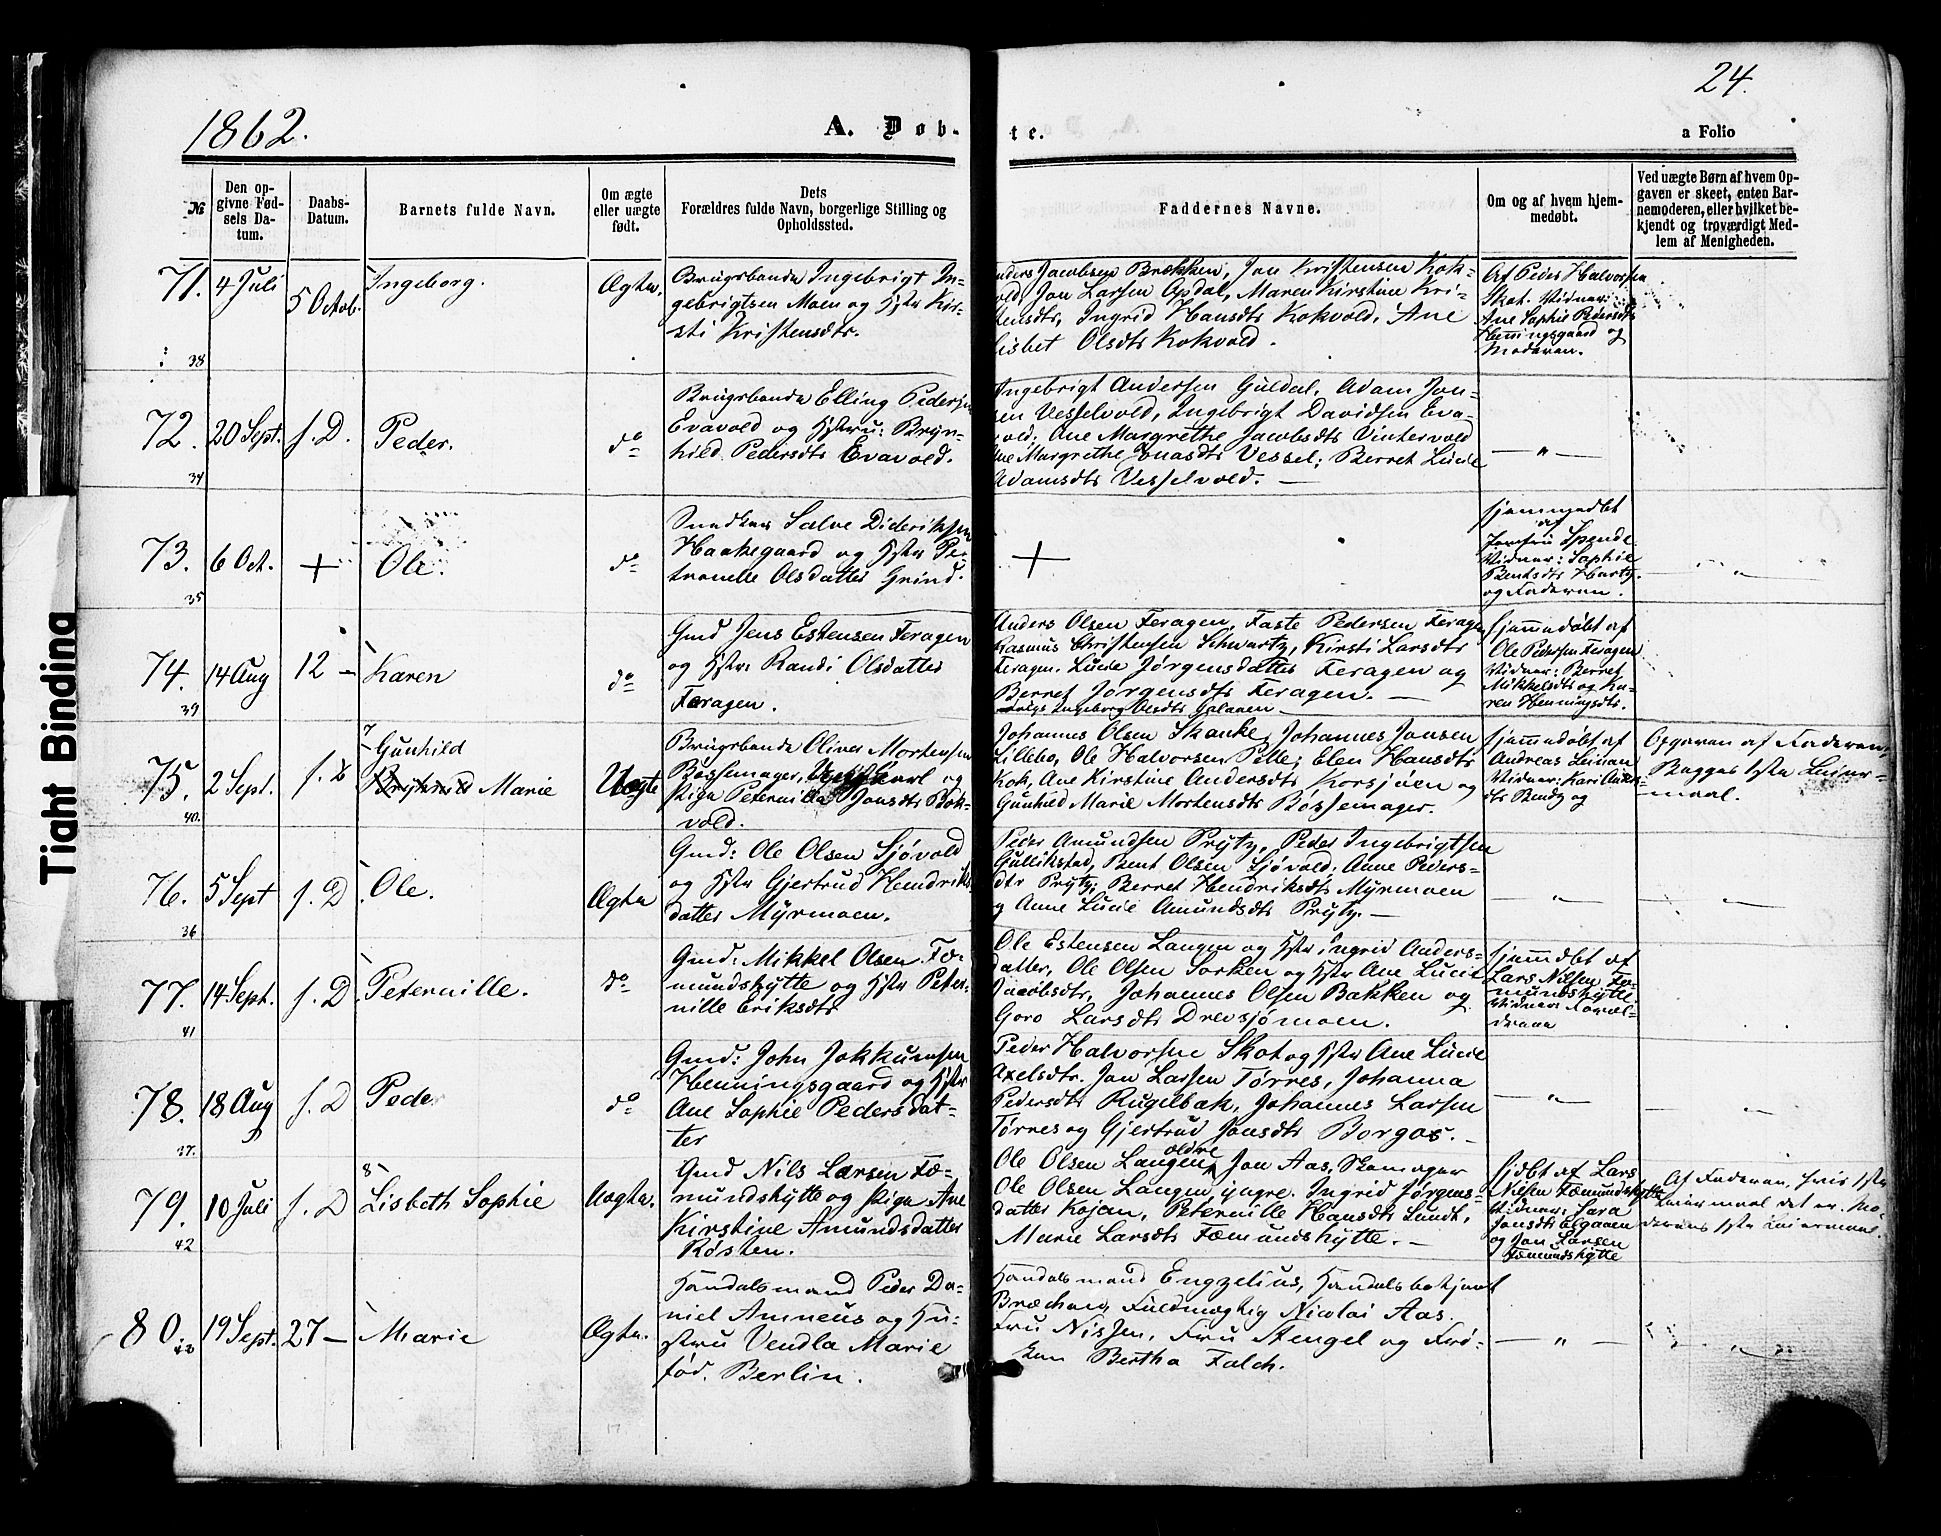 24.
1862.
A. Døb-
te.
a Folio
№
Den op-
givne Fød-
sels Da-
tum.
Daabs-
Datum.
Barnets fulde Navn.
Om ægte
eller uægte
født.
Dets
Forældres fulde Navn, borgerlige Stilling og
Opholdssted.
Faddernes Navne.
Om og af hvem hjem-
medøbt.
Ved uægte Børn af hvem Op-
gaven er skeet, enten Bar-
nemoderen, eller hvilket be-
kjendt og troværdigt Med-
lem af Menigheden.
71.
38
4 Juli
5 Octob.
Ingeborg.
Ægte.
Brugsbonde Ingebrigt In-
gebrigtsen Moen og Hstr Kir-
sti Kristensdtr.
Jacobsen Brekken, Jon Kristensen Kok-
vold, Jon Larsen Opdal, Maren Kirstine Kri-
stensdtr, Ingrid Hansdtr Kokvold, Ane
Lisbet Olsdtr Kokvold.
Af Peder Halvorsen
Skot. Vidner:
Ane Sophie Pedersdtr
Henningsgaard og
Moderen.
72.
34
20 Sept.
s. D.
Peder.
do
Brugsbonde Elling Pedersen
Evavold og Hstru: Bryn-
hild Pedersdtr Evavold.
Ingebrigt Andersen Guldal, Adam Jon-
sen Vesselvold, Ingebrigt Davidsen Eva-
vold; Ane Margrethe Jacobsdtr Vintervold
Ane Margrethe Enasdtr Vessel; Berret Lucie
Adamsdtr Vesselvold. —
— " —
73.
35
6 Oct.
+
Ole.
do
Snedker Salve Dideriksen
Haakegaard og Hstr Pe-
tronelle Olsdatter Grind.
+
Hjemmedøbt
af
Jomfru Spende
Vidner: Sophie
Bentsdtr Hartz.
og Faderen.
— " —
74.
39
14 Aug
12 —
Karen
do
Gmd Jens Estensen Feragen
og Hstr: Randi Olsdatter
Feragen.
Anders Olsen Feragen, Faste Pedersen Feragen
Rasmus Christensen Schwartz, Kirsti Larsdtr
Feragen. Lucie Jørgensdatter Feragen og
Berret Jørgensdtr Feragen. —
Ingeborg Olsdtr Galaaen
Hjemmedøbt af
Ole Pedersen Feragen
Vidner: Berret
Mikkelsdtr og Ka-
ren Henningsdtr.
75.
40.
2 Sept.
s. D
7
Gunhild
Marie
Uægte
Brugsbonde Oliver Mortensen
Bossemager, Ungkarl og
Pige Peternille Jonsdtr Kok-
vold.
Johannes Olsen Skanke, Johannes Jonsen
Lillebo, Ole Halvorsen Pelle; Elen Hansdtr
Kok, Ane Kirstine Andersdtr Korsjøen og
Gunhild Marie Mortensdtr Bossemager.
Hjemmedøbt af
Andreas Leinan
Vidner: Kari Anders-
dtr Bendz og
Opgaven af Faderen,
Begges 1ste Leier-
maal.
76.
36
5 Sept
s. D.
Ole.
Ægte
Gmd: Ole Olsen Sjøvold
og Hstr Gjertrud Hendriks-
datter Myrmoen.
Peder Amundsen Prytz, Peder Ingebrigtsen
Gullikstad, Bent Olsen Sjøvold; Anne Peders-
dtr Prytz; Berret Hendriksdtr Myrmoen
og Anne Lucie Amundsdtr Prytz. —
— " —
— " —
77.
41
14 Sept.
s. D.
Peternille.
do
Gmd: Mikkel Olsen Fæ-
mundshytte og Hstr Peter-
nille Eriksdtr
Ole Estensen Langen og Hstr Ingrid Anders-
datter, Ole Olsen Sorken og Hstr Ane Lucie
Jacobsdtr, Johannes Olsen Bakken og
Goro Larsdtr Drevsjømoen.
Hjemmedøbt af
Lars Nilsen Fæ-
mundshytte.
Vidner Foræl-
drene
78.
37.
18 Aug
s. D
Peder
do
Gmd: John Jokkumsen
Henningsgaard og Hstr
Ane Sophie Pedersdat-
ter
Peder Halvorsen Skot og Hstr Ane Lucie
Axelsdtr. Jon Larsen Tørres, Johanna
Pedersdtr Rugelbak, Johannes Larsen
Tørres og Gjertrud Jonsdtr Borgos. —
— " —
— " —
79.
42
10 Juli
s. D
8
Lisbeth Sophie
Uægte.
Gmd Nils Larsen Fæ-
mundshytte og Pige Ane
Kirstine Amundsdatter
Røsten.
Ole Olsen Langen ældre, Jon Aas, Skomager
Ole Olsen Langen yngre. Ingrid Jørgens-
datter Kojan, Peternille Hansdtr Lundt,
Marie Larsdtr Fæmundshytte. —
Hjdbt af Lars
Nilsen Fæmundshytte
Vidner: Sara
Jonsdtr Elgaaen
og Jon Larsen
Fæmundshytte
Af Faderen, hvis 1ste
Leiermaal det er. Mo-
derens 1ste Leiermaal.
80.
43
19 Sept.
27 —
Marie
Ægte.
Handelsmand Peder Da-
niel Amneus og Hu-
stru Vendla Marie
fød. Berlin.
Handelsmand Engzelius, Handelsbetjent
Bræchan, Fuldmægtig Nicolai Aas.
Fru Nissen, Fru Stengel og Frø-
ken Bertha Falch.
— " —
"
Tight Binding